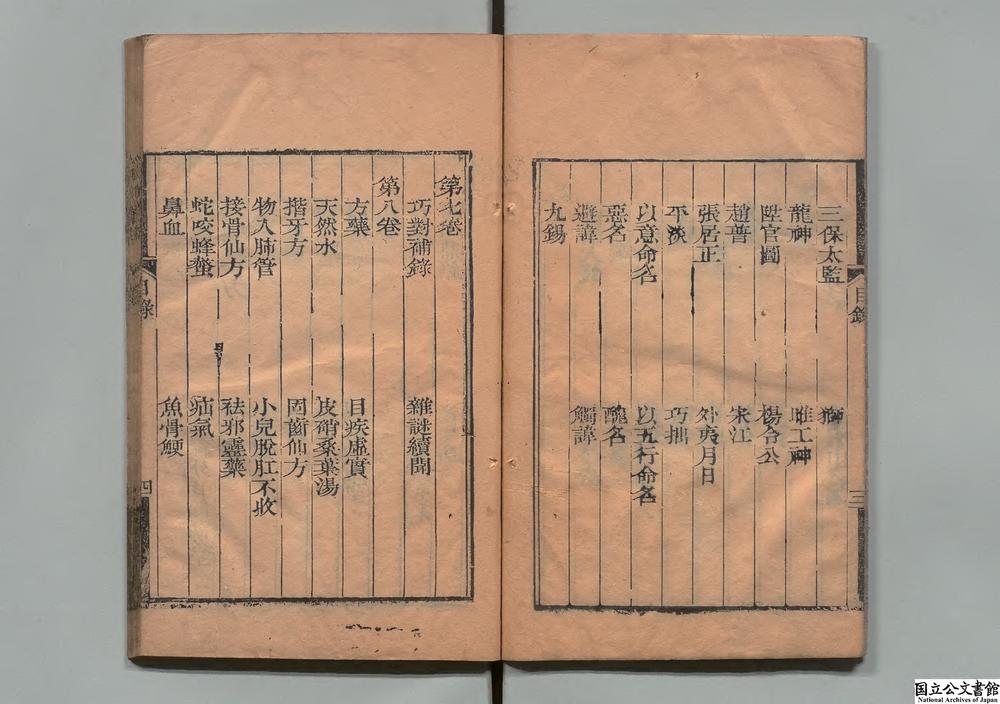 三保太監 獅
龍神 雎工神
陞官圖 楊合公
趙普 宋江
張居正 外夷月日
平淡 巧拙
以意命名 以五行命名
惡名 醜名
避諱 觸諱
九錫
目錄 三
第七卷
巧對補錄 雜謎續聞
第八卷
方藥 目疾虛實
天然水 皮硝桑葉湯
揩牙方 固齒仙方
物入肺管 小兒脫肛不收
接骨仙方 祛邪靈藥
蛇咬蜂螫 疝氣
鼻血 魚骨鯁
目錄 四
国立公文書館
National Archives of Japan